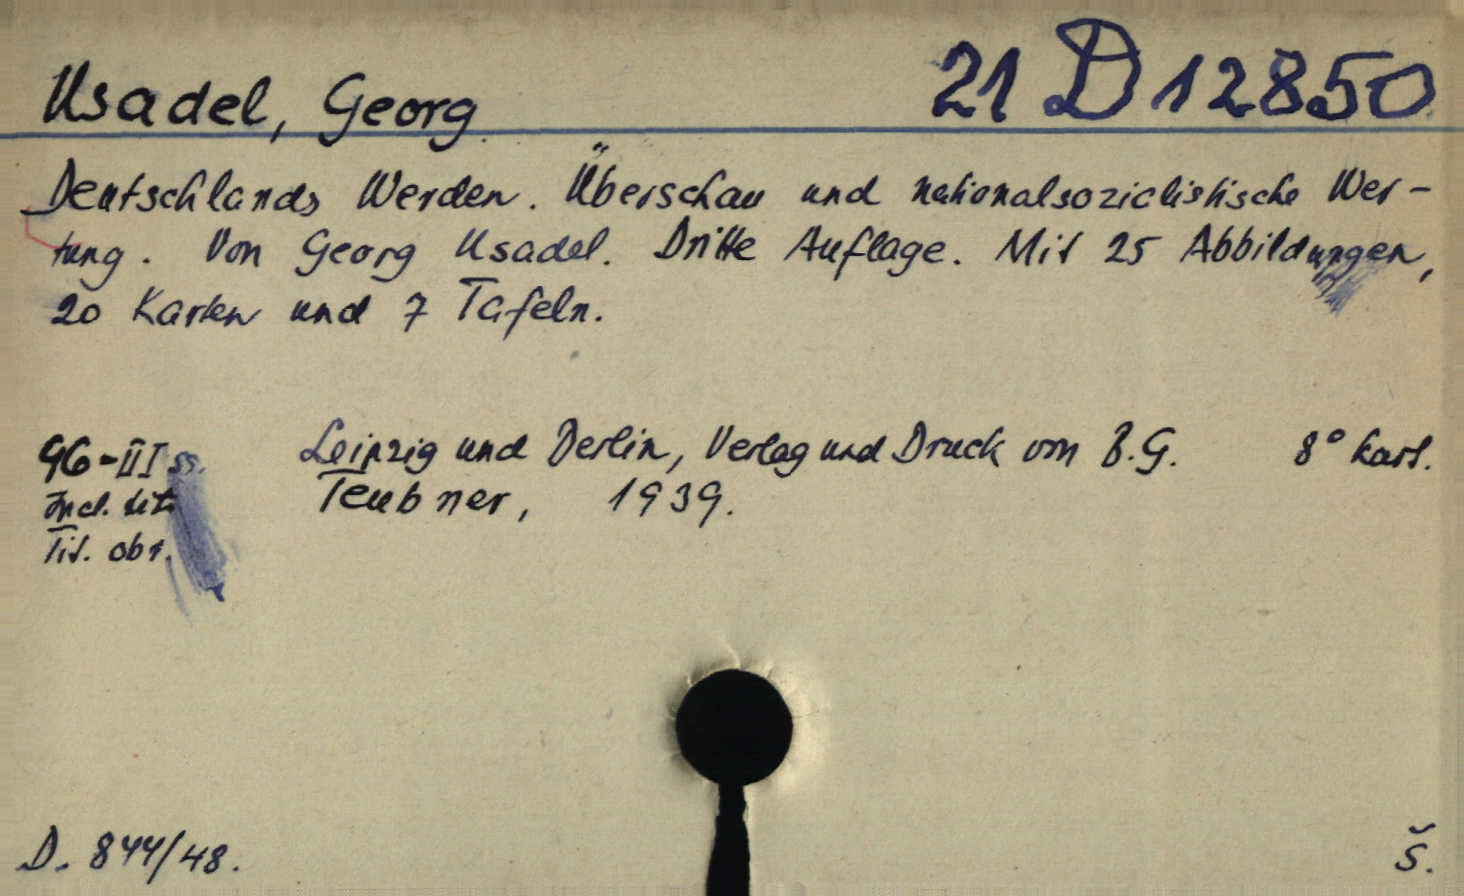 Usadel, Georg
21 D 12850
Deutschlands Werden. Überschau und nationalsozialistische Wer-
tung. Von Georg Usadel. Dritte Auflage. Mit 25 Abbildungen,
20 Karten und 7 Tafeln.
Leipzig und Berlin, Verlag und Druck von B.G.
8° kart.
Teubner, 1939.
96-III ss.
Incl. tit.
Tit. obr.
D. 844/48.
Š.